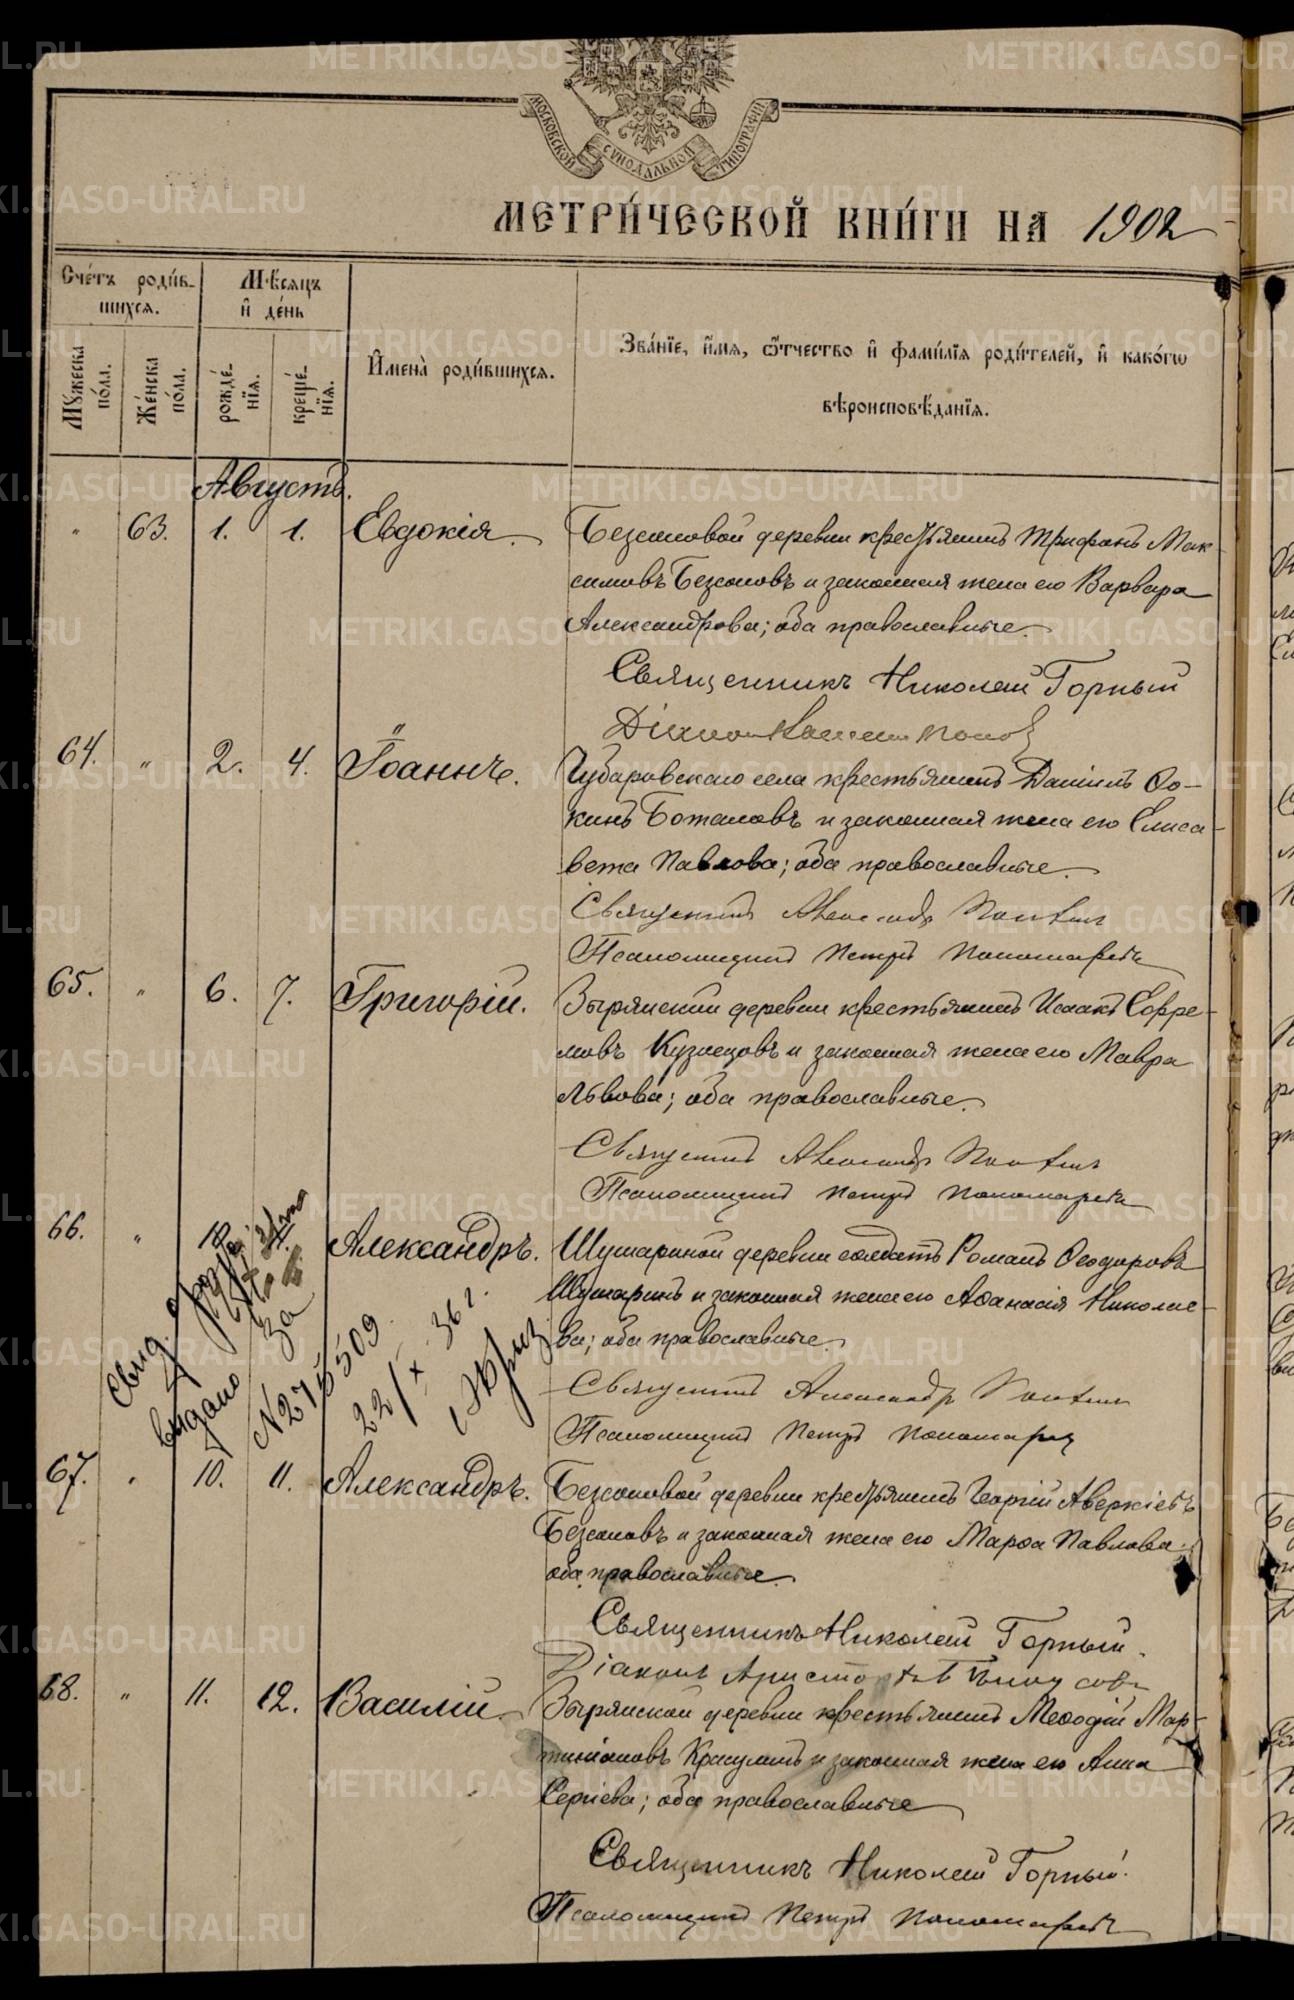 МОСКОВСКОЙ СѴНОДАЛЬНОЙ ТИПОГРАФІИ
МЕТРИ́ЧЕСКОЙ КНИ́ГИ НА 1902
Сче́тъ роди́в-
шихсѧ.
Мꙋ́жеска по́ла.
Же́нска по́ла.
Мѣ́сѧцъ
и҆ де́нь
рожде́нїѧ.
креще́нїѧ.
И҆мена̀ роди́вшихсѧ.
Зва́нїе, и҆́мѧ, ѻ҆́тчество и҆ фами́лїѧ роди́телей, и҆ како́гѡ
вѣроисповѣ́данїѧ.
Августъ.
" 63. 1. 1. Евдокія. Безсоновой деревни крестьянинъ Трифонъ Мак-
симовъ Безсоновъ и законная жена его Варвара
Александрова; оба православные.
Священникъ Николай Горный
Діаконъ
64. " 2. 4. Іоаннъ. Чубаровскаго села крестьянинъ Даніилъ Ѳо-
кинъ Боталовъ и законная жена его Елиса-
вета Павлова; оба православные.
Священникъ Александр
Псаломщикъ Петръ Пономаревъ
65. " 6. 7. Григорій. Зырянской деревни крестьянинъ Исаакъ Ефре-
мовъ Кузнецовъ и законная жена его Мавра
Львова; оба православные.
Священникъ Александр
Псаломщикъ Петръ Пономаревъ
66. " 10. Александръ. Шушариной деревни солдатъ Романъ Ѳеодоровъ
Шушаринъ и законная жена его Аѳанасія Николае-
ва; оба православные.
Священникъ Александр
Псаломщикъ Петръ Пономарев
Свид. о рожд.
выдано за
N 275509
22/X 36 г.
67. " 10. 11. Александръ. Безсоновой деревни крестьянинъ Георгій Аверкіевъ
Безсоновъ и законная жена его Марѳа Павлова;
оба православные.
Священникъ Николай Горный.
Діаконъ
68. " 11. 12. Василій. Зырянской деревни крестьянинъ Меѳодій Мар-
тиніановъ Красулинъ и законная жена его Анна
Сергіева; оба православные
Священникъ Николай Горный.
Псаломщикъ Петръ Пономаревъ
METRIKI.GASO-URAL.RU